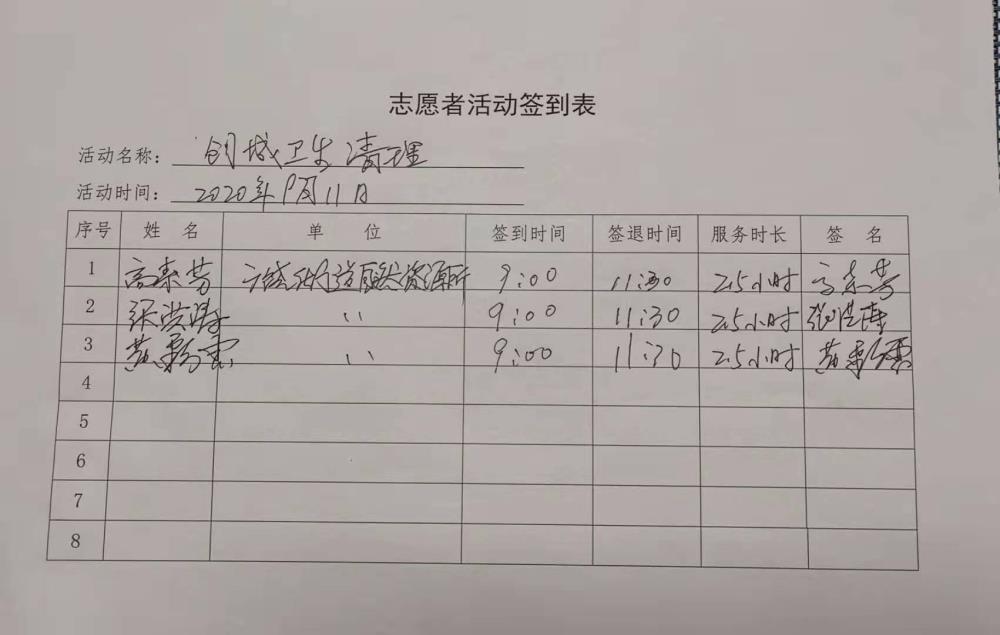 志愿者活动签到表
活动名称: 创城卫生清理
活动时间: 2020年9月11日
序号 姓 名 单 位 签到时间 签退时间 服务时长 签 名
1 高素芳 街道 9:00 11:30 2.5小时 高素芳
2 张洪 〃 9:00 11:30 2.5小时 张洪
3 黄彩霞 〃 9:00 11:30 2.5小时 黄彩霞
4
5
6
7
8